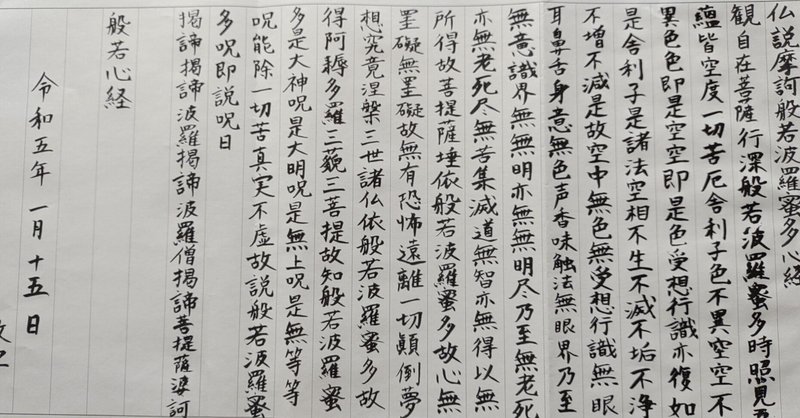 仏説摩訶般若波羅蜜多心経
観自在菩薩行深般若波羅蜜多時照見五
蘊皆空度一切苦厄舎利子色不異空空不
異色色即是空空即是色受想行識亦復如
是舎利子是諸法空相不生不滅不垢不浄
不増不減是故空中無色無受想行識無眼
耳鼻舌身意無色声香味触法無眼界乃至
無意識界無無明亦無無明尽乃至無老死
亦無老死尽無苦集滅道無智亦無得以無
所得故菩提薩埵依般若波羅蜜多故心無
罣礙無罣礙故無有恐怖遠離一切顛倒夢
想究竟涅槃三世諸仏依般若波羅蜜多故
得阿耨多羅三藐三菩提故知般若波羅蜜
多是大神呪是大明呪是無上呪是無等等
呪能除一切苦真実不虚故説般若波羅蜜
多呪即説呪曰
掲諦掲諦波羅掲諦波羅僧掲諦菩提薩婆訶
般若心経
令和五年 一月十五日